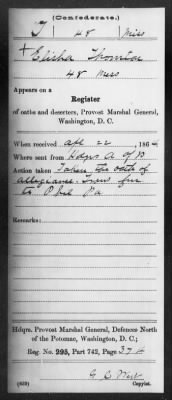 (Confederate.)
T 48 Miss
+ Elisha Thornton
48 Miss
Appears on a
Register
of oaths and deserters, Provost Marshal General,
Washington, D. C.
When received Apl 22, 186
Where sent from Hdqrs A of P
Action taken Taken the oath of
allegiance. Trans fur
to Phil Pa
Remarks:
Hdqrs. Provost Marshal General, Defences North
of the Potomac, Washington, D. C.;
Reg. No. 295, Part 742, Page 374
(639) Copyist.